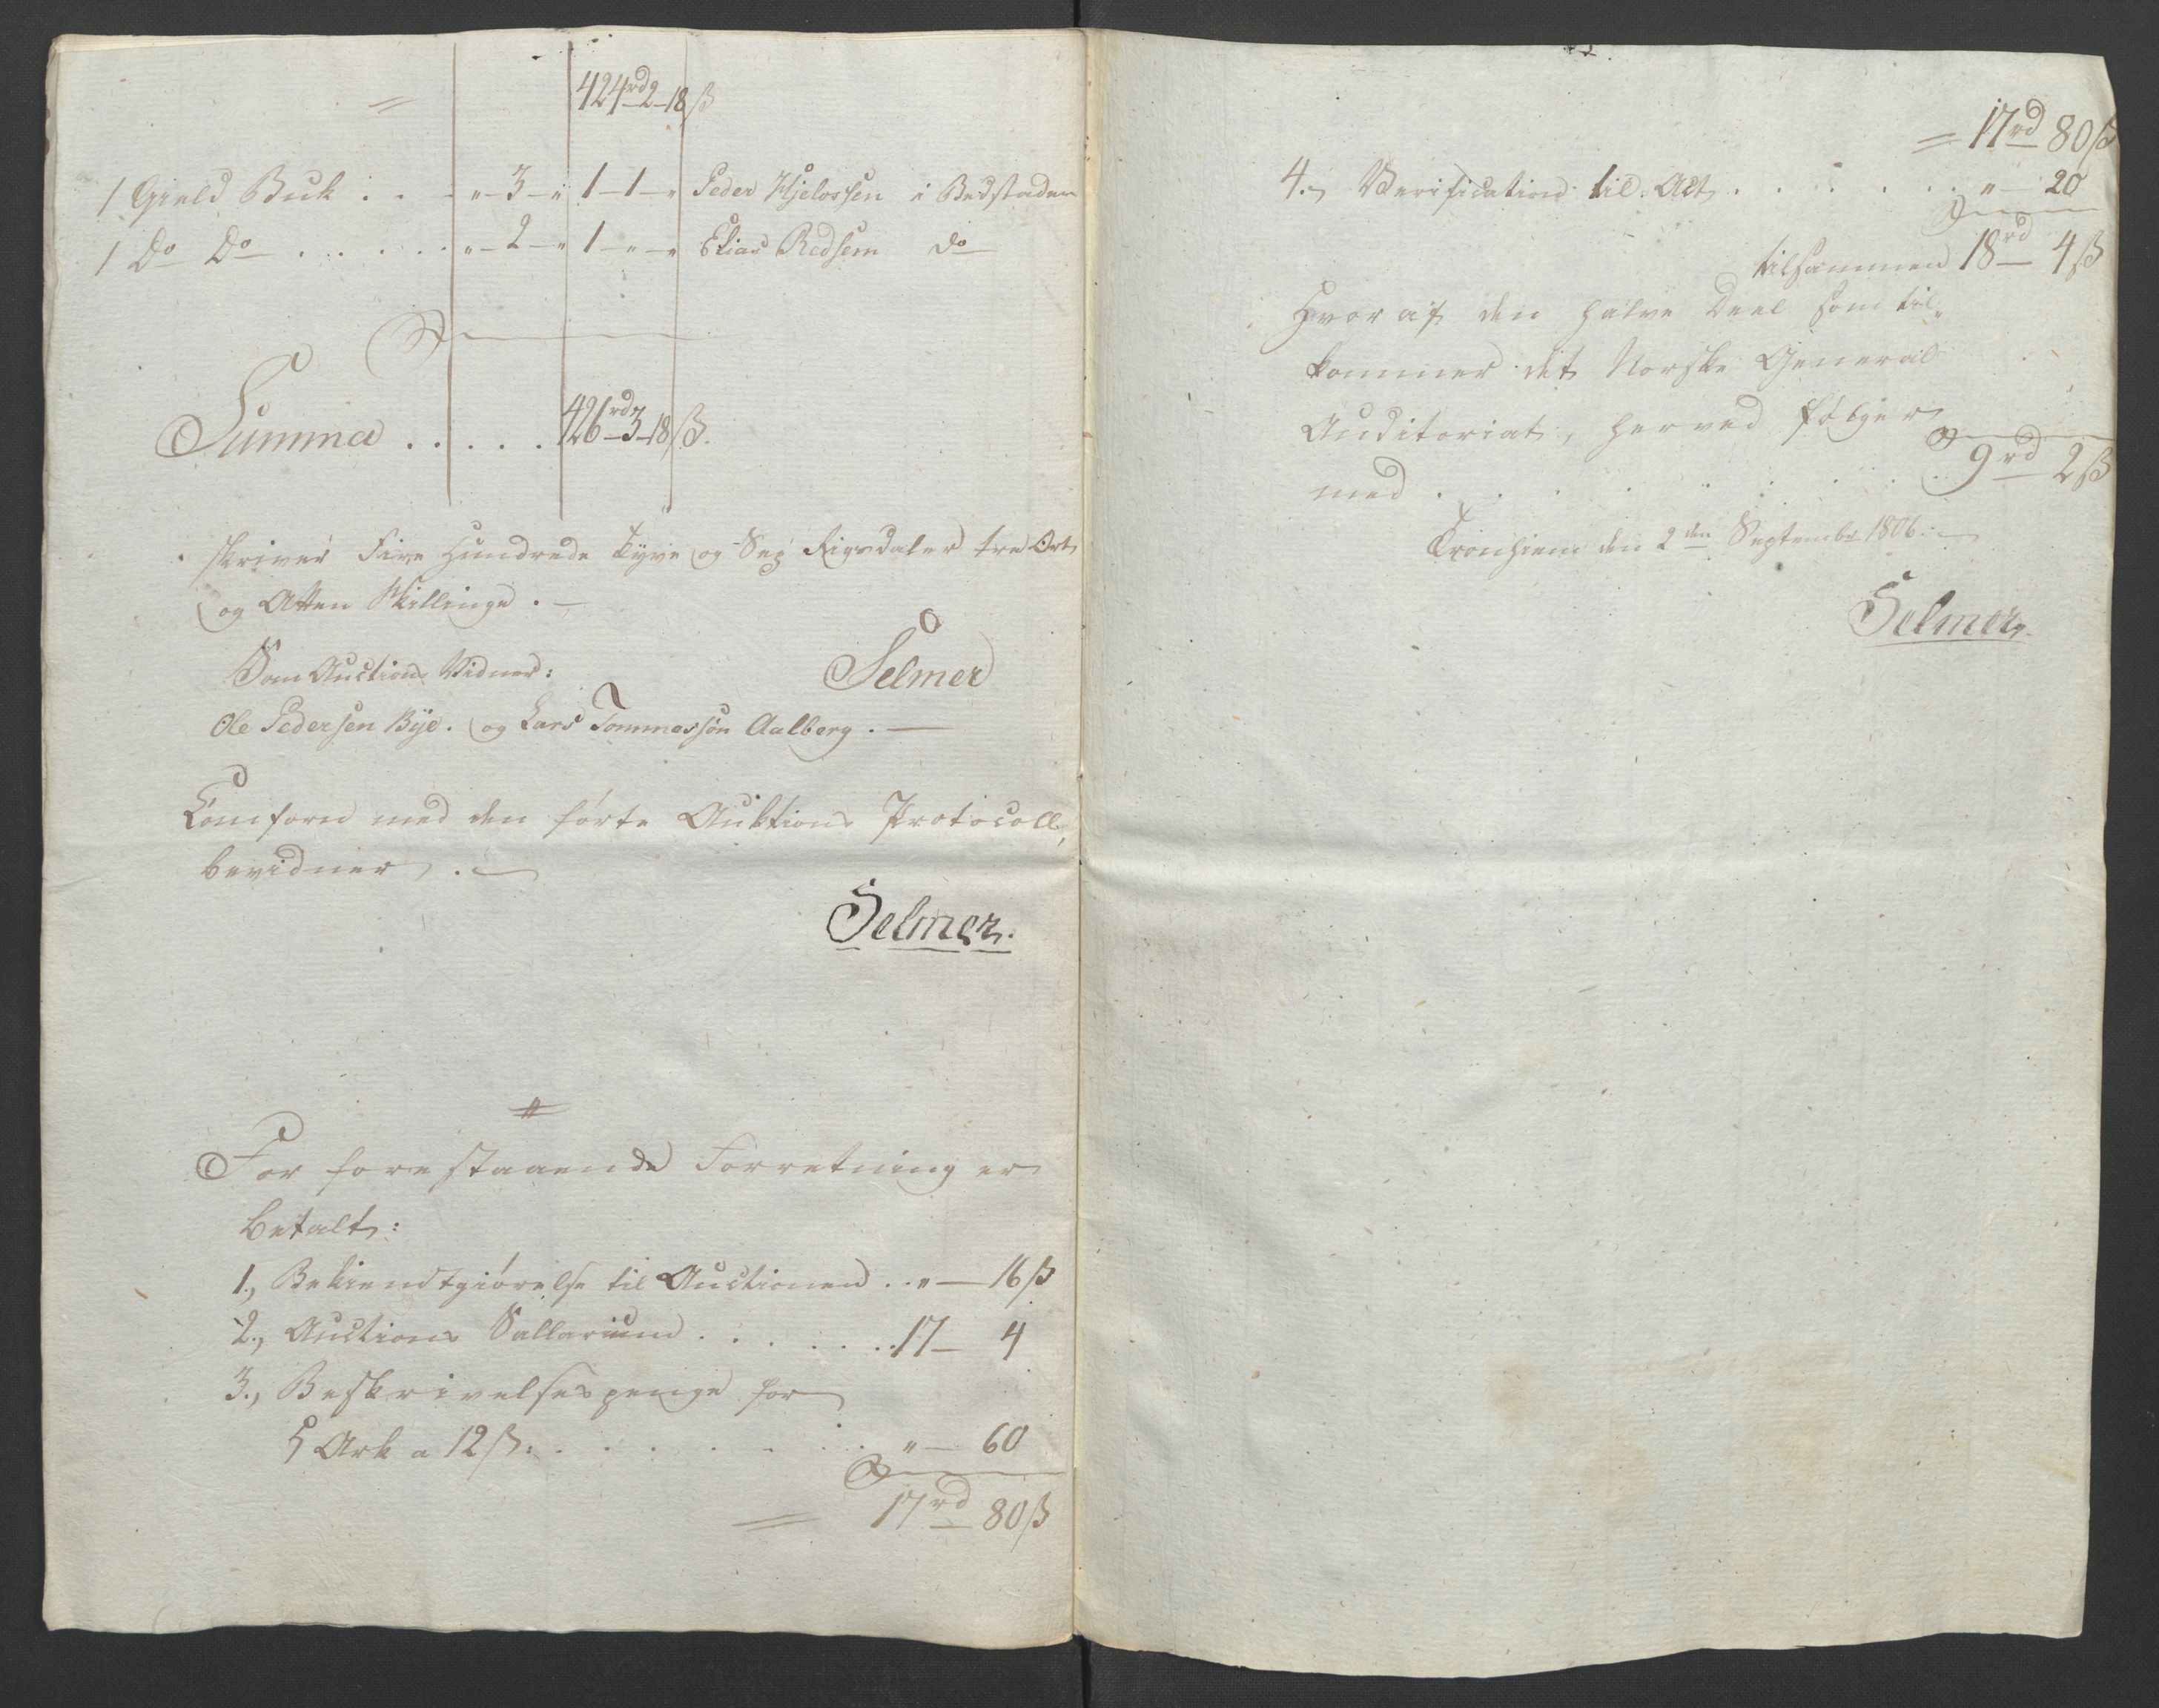 = 424rd 2-18ß
1 Gield Buk . . . "-3-" 1-1-" Peder Hjelossen i Bedstaden
1 Do Do . . . . . "-2-" 1-"-" Elias Redsem do
Summa . . . . . 426rd 3-18ß.
skriver Fire Hundrede Tyve og Sex Rigsdaler tre Ort
og Atten Skillinge . —
Selmer
Som Auctions Vidner:
Ole Pedersen Bye. og Lars Tommessøn Aalberg . —
Conform med den førte Auktions Protocoll,
bevidner . —
Selmer.
For forestaaende Forretning er
betalt:
1., Bekiendtgiørelse til Auctionen . . " — 16ß
2., Auctions Sallarium . . . . . . 17 — 4
3., Beskrivelsespenge for
5 Ark a 12ß: . . . . . . " — 60
= 17rd 80ß
= 17rd 80ß
4., Verification til Act . . . . . . " — 20
tilsammen 18rd 4ß
Hvoraf den halve Deel som til-
kommer det Norske General
Auditoriat, herved følger
med . . . . . . . . 9rd 2ß
Tronhiem den 2den Septembr 1806. —
Selmer.